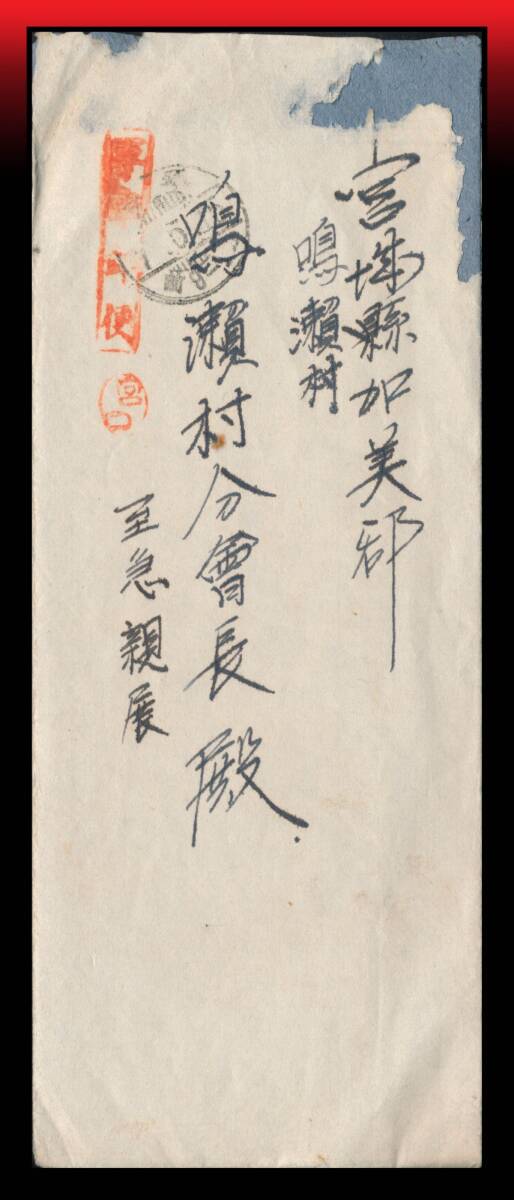 宮城縣加美郡
鳴瀬村
鳴瀬村分會長殿
至急親展
軍事郵便
宮口